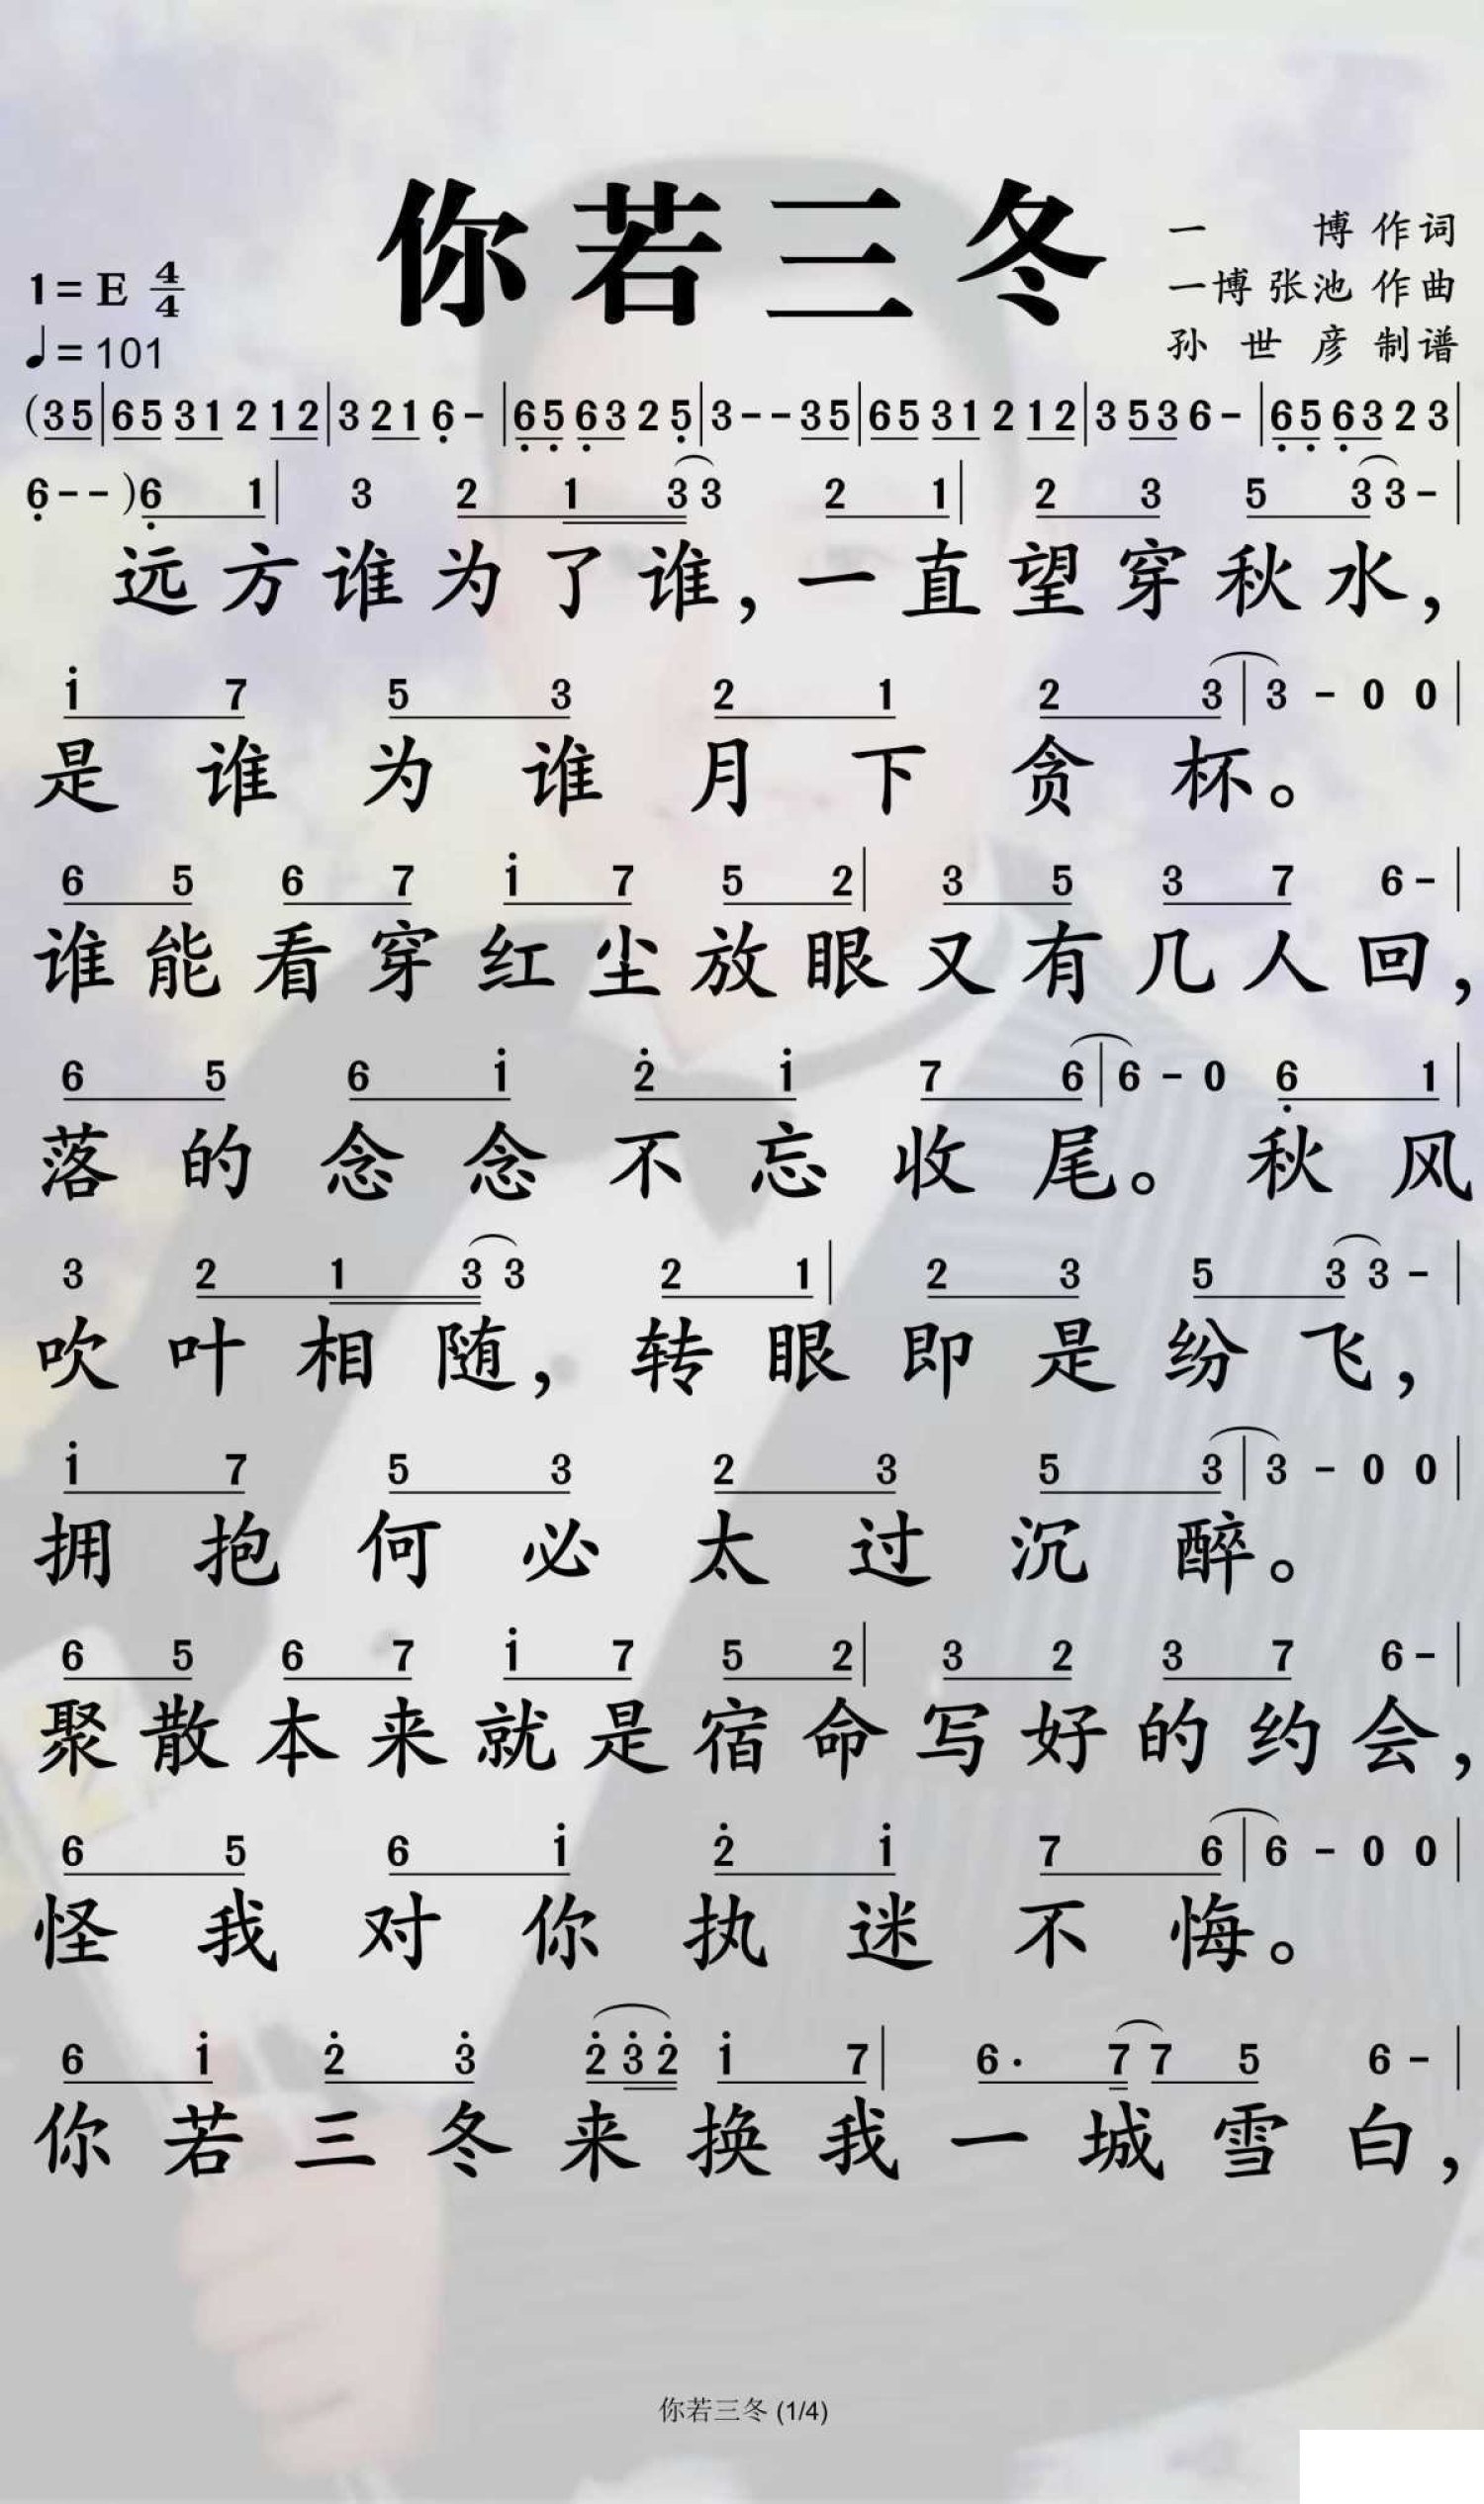 你若三冬
一 博 作词
1= E 4/4
一博 张池 作曲
♩= 101
孙 世 彦 制谱
(35|65 31 2 12|3 21 6̣ -|6̣5̣ 6̣3 2 5̣|3--35|65 31 2 12|3 53 6-|6̣5̣ 6̣3 2 3|
6̣-- )6̣ 1| 3 2 1 3 3 2 1| 2 3 5 3 3 -|
远方谁为了谁，一直望穿秋水，
i 7 5 3 2 1 2 3|3 - 0 0|
是谁为谁月下贪杯。
6 5 6 7 i 7 5 2|3 5 3 7 6 -|
谁能看穿红尘放眼又有几人回，
6 5 6 i 2̇ i 7 6|6 - 0 6̣ 1|
落的念念不忘收尾。秋风
3 2 1 3 3 2 1|2 3 5 3 3 -|
吹叶相随，转眼即是纷飞，
i 7 5 3 2 3 5 3|3 - 0 0|
拥抱何必太过沉醉。
6 5 6 7 i 7 5 2|3 2 3 7 6 -|
聚散本来就是宿命写好的约会，
6 5 6 i 2̇ i 7 6|6 - 0 0|
怪我对你执迷不悔。
6 i 2̇ 3̇ 2̇ 3̇ 2̇ i 7|6· 7 7 5 6 -|
你若三冬来换我一城雪白，
你若三冬 (1/4)